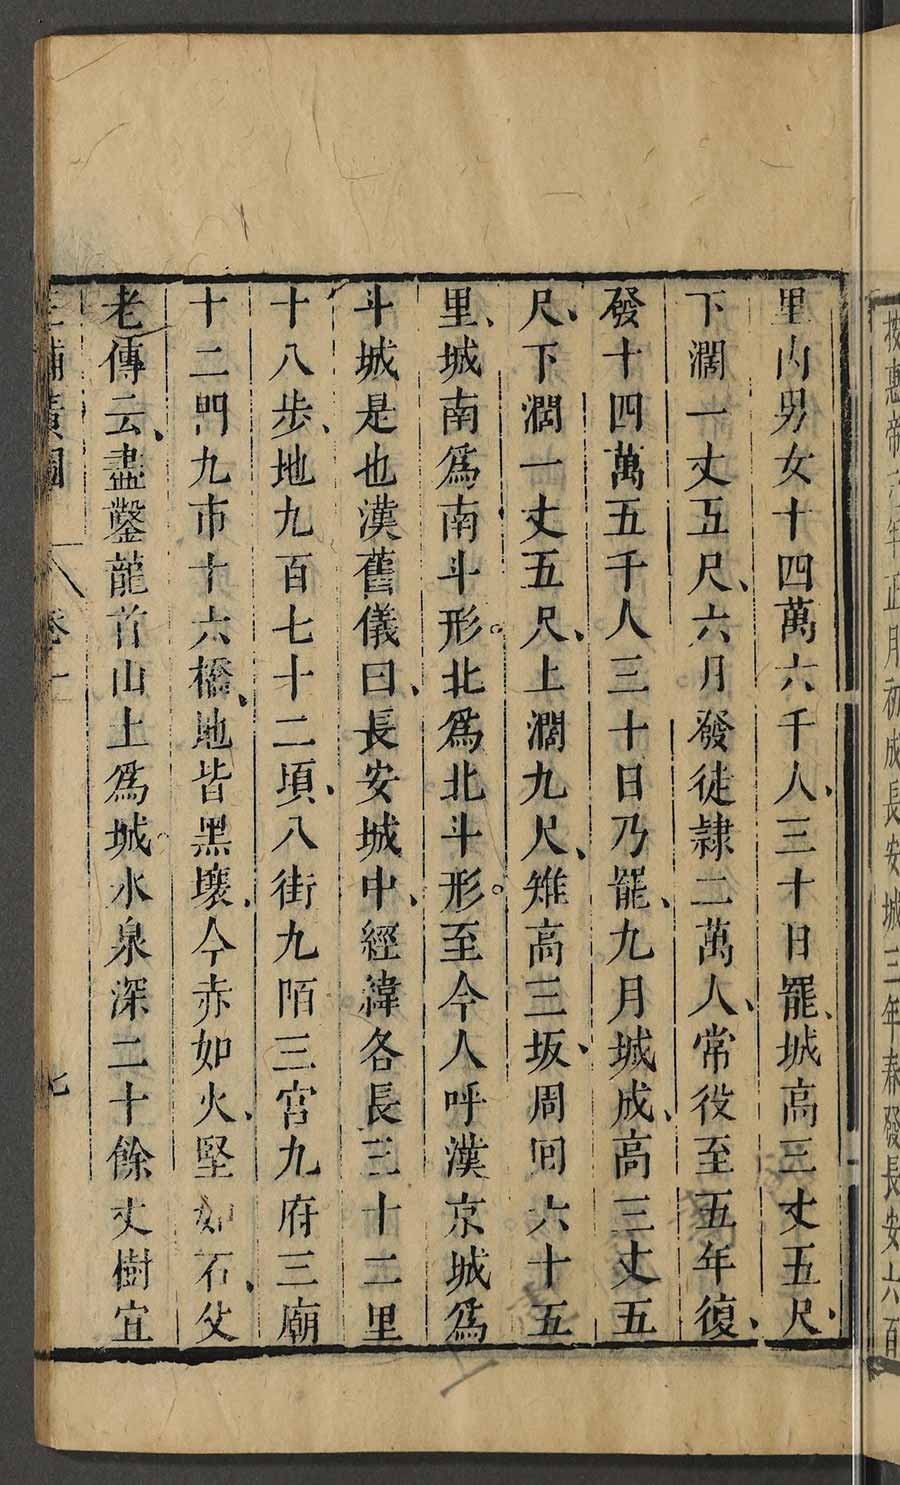 按惠帝六年正月初成長安城三年春發長安六百
里内男女十四萬六千人三十日罷城高三丈五尺
下濶一丈五尺六月發徒隷二萬人常役至五年復
發十四萬五千人三十日乃罷九月城成高三丈五
尺下濶一丈五尺上濶九尺雉高三坂周回六十五
里城南爲南斗形北爲北斗形至今人呼漢京城爲
斗城是也漢舊儀曰長安城中經緯各長三十二里
十八步地九百七十二頃八街九陌三宮九府三廟
十二門九市十六橋地皆黑壤今赤如火堅如石父
老傳云盡鑿龍首山土爲城水泉深二十餘丈樹宜
三輔黃圖 卷一 七